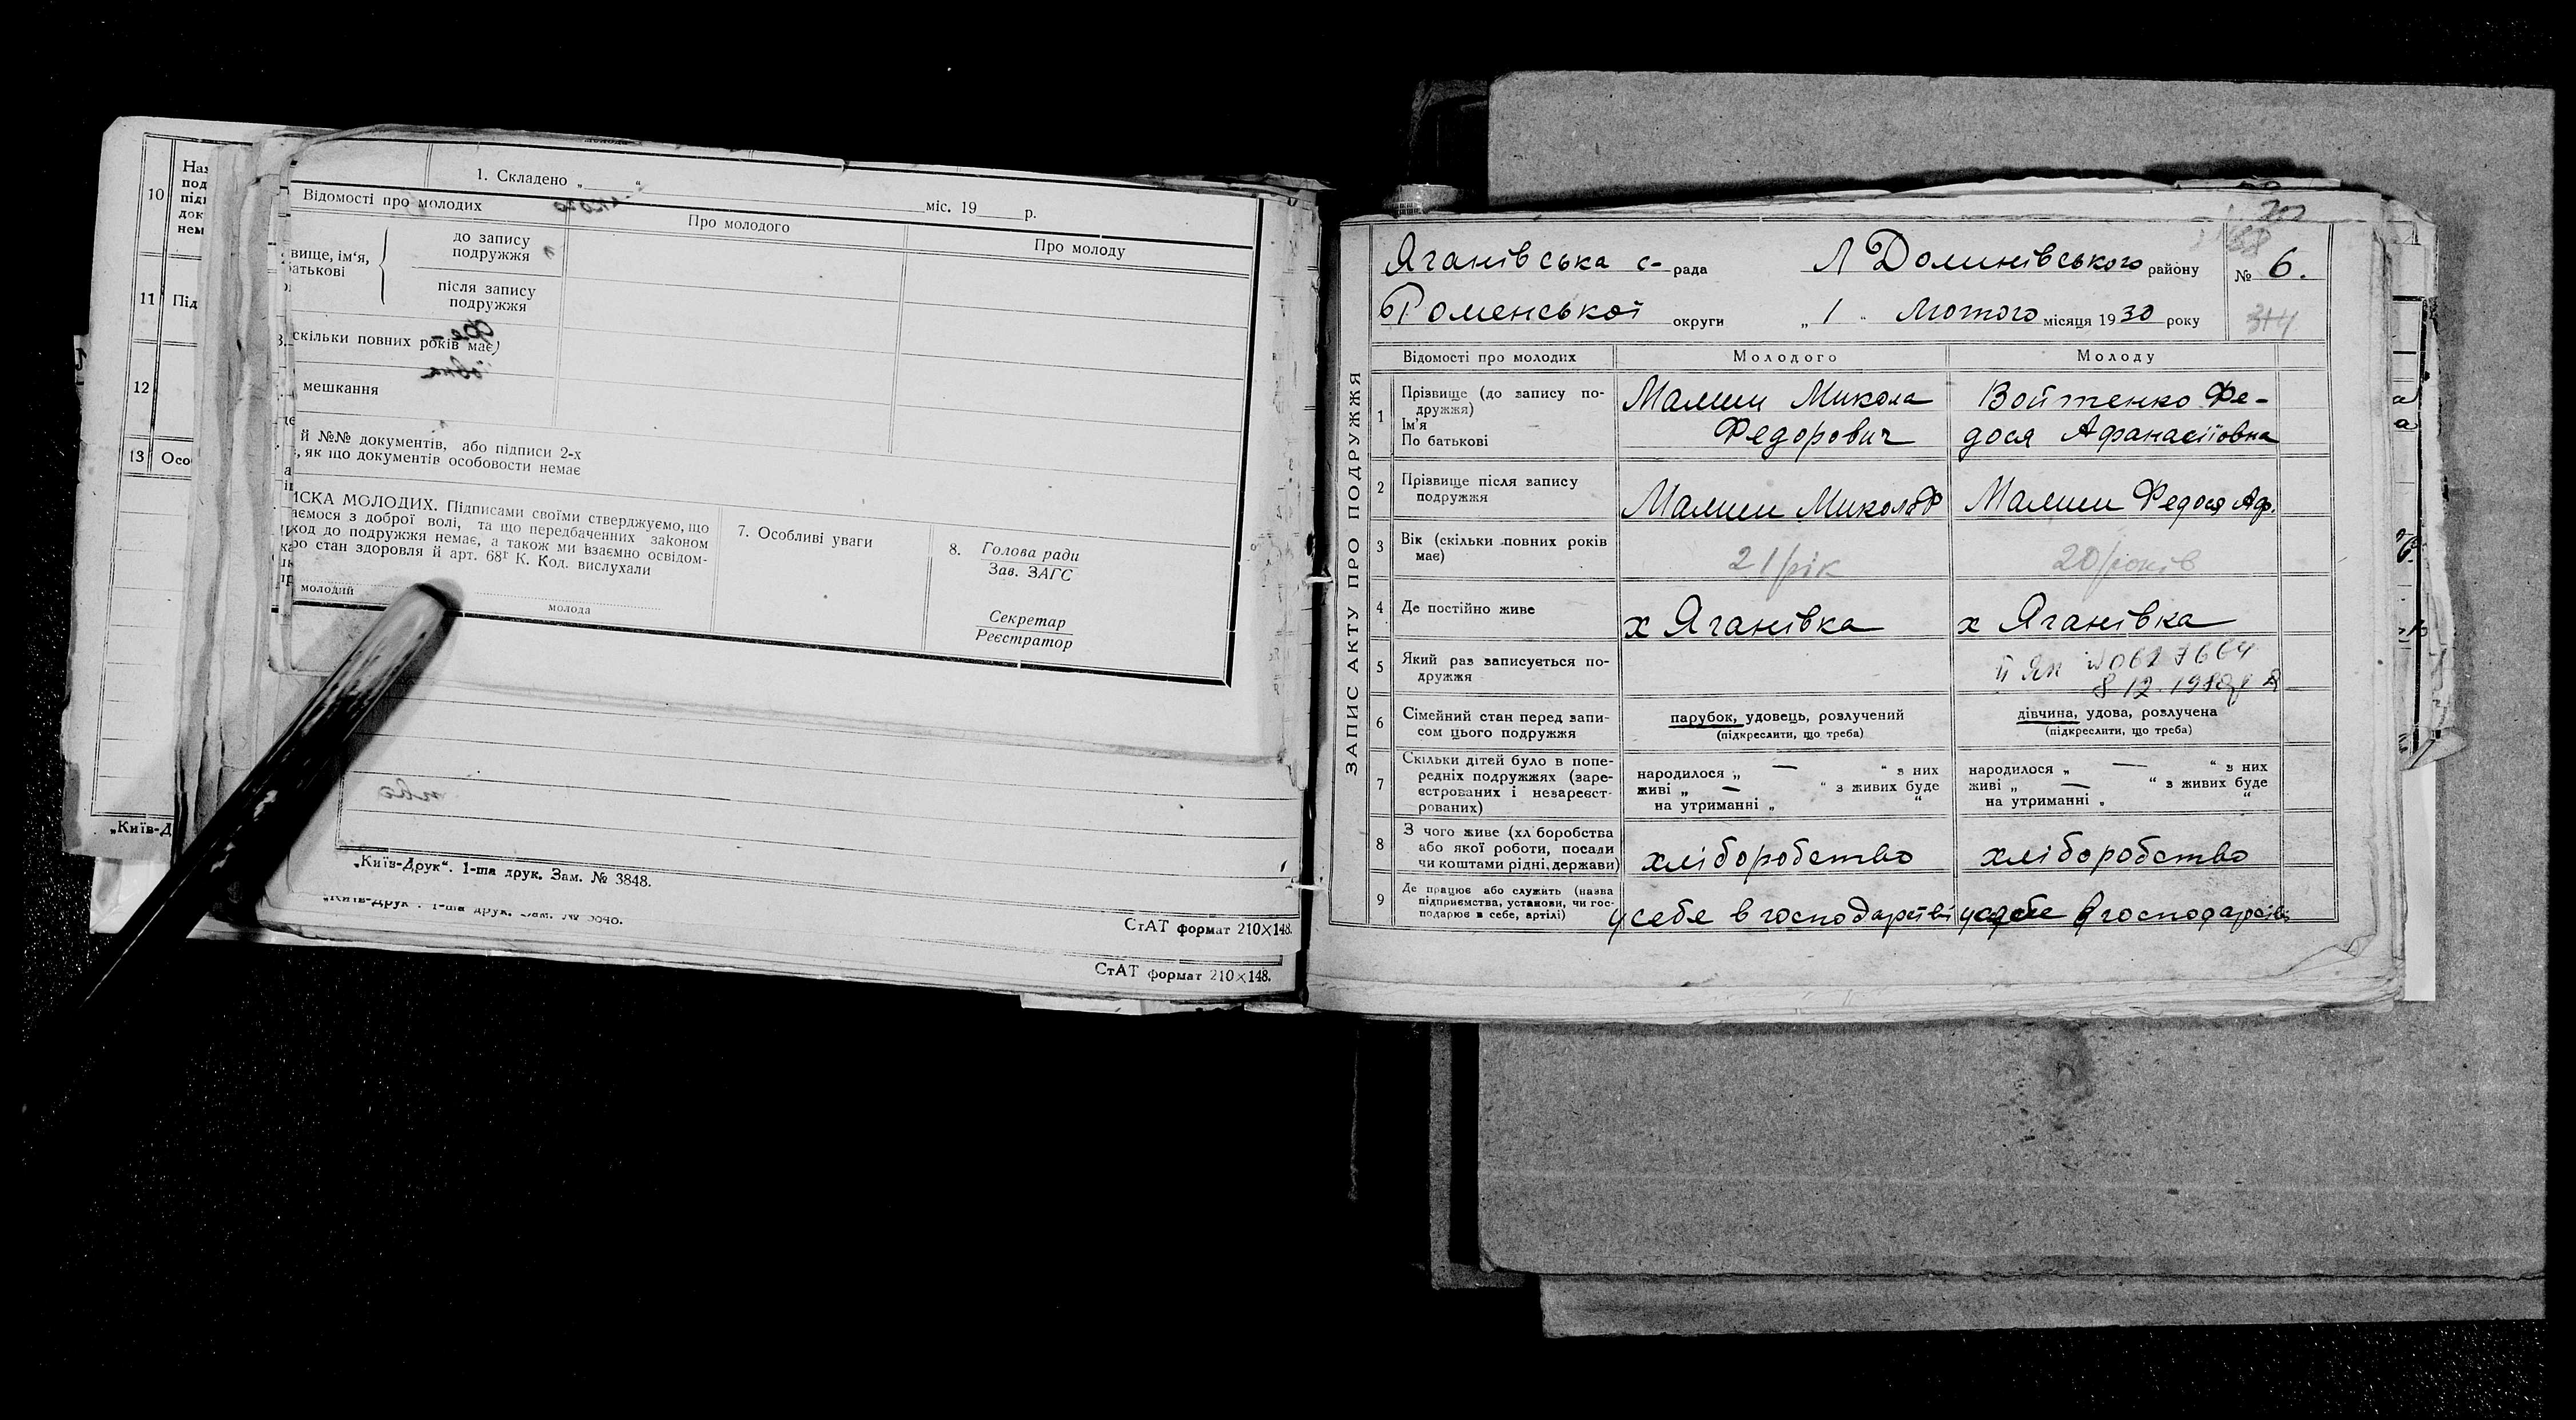 10
На
под
під
док
нем
11 Під
12
13 Осо
„Київ-Д
молода
1. Складено „ “ міс. 19 р.
Відомості про молодих
Про молодого
Про молоду
вище, ім‘я,
батькові
до запису
подружжя
після запису
подружжя
скільки повних років має)
мешкання
й №№ документів, або підписи 2-х
, як що документів особовости немає
ИСКА МОЛОДИХ. Підписами своїми стверджуємо, що
аємося з доброї волі, та що передбаченних законом
ход до подружжя немає, а також ми взаємно освідом-
ро стан здоровля й арт. 68¹ К. Код. вислухали
молодий
молода
7. Особливі уваги
8. Голова ради
Зав. ЗАГС
Секретар
Реєстратор
„Київ-Друк“. 1-ша друк. Зам. № 3848.
СтАТ формат 210×148.
СтАТ формат 210×148.
ЗАПИС АКТУ ПРО ПОДРУЖЖЯ
Яганівська с- рада Л Долинівського району № 6.
Роменської округи „ 1 “ Лютого місяця 1930 року
314
Відомості про молодих
Молодого
Молоду
1 Прізвище (до запису по-
дружжя)
Ім'я
По батькові
Малиш Микола
Федорович
Войтенко Фе-
дося Афанасіїовна
2 Прізвище після запису
подружжя
Малиш Микола Ф
Малиш Федося Аф.
3 Вік (скільки повних років
має)
21 рік
20 років
4 Де постійно живе
х Яганівка
х Яганівка
5 Який раз записується по-
дружжя
6 Сімейний стан перед запи-
сом цього подружжя
парубок, удовець, розлучений
(підкреслити, що треба)
дівчина, удова, розлучена
(підкреслити, що треба)
7 Скільки дітей було в попе-
редніх подружжях (заре-
єстрованих і незареєст-
рованих)
народилося „ — “ з них
живі „ — “ з живих буде
на утриманні „ “
народилося „ — “ з них
живі „ — “ з живих буде
на утриманні „ “
8 З чого живе (хл боробства
або якої роботи, посади
чи коштами рідні, держави)
хліборобство
хліборобство
9 Де працює або служить (назва
підприємства, установи, чи гос-
подарює в себе, артілі)
у себе в господарстві
у себе в господарстві